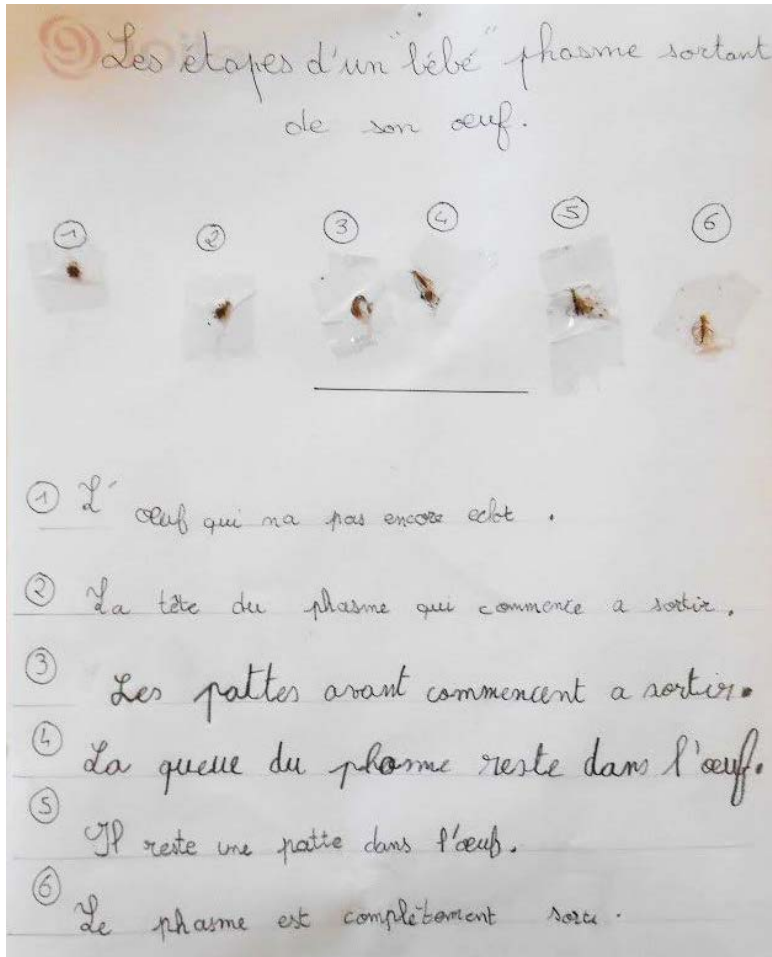 Les étapes d'un "bébé" phasme sortant
de son œuf.
① ② ③ ④ ⑤ ⑥
① L'œuf qui na pas encore eclot.
② La tête du phasme qui commence a sortir.
③ Les pattes avant commencent a sortir.
④ La queue du phasme reste dans l'œuf.
⑤ Il reste une patte dans l'œuf.
⑥ Le phasme est complètement sorti.